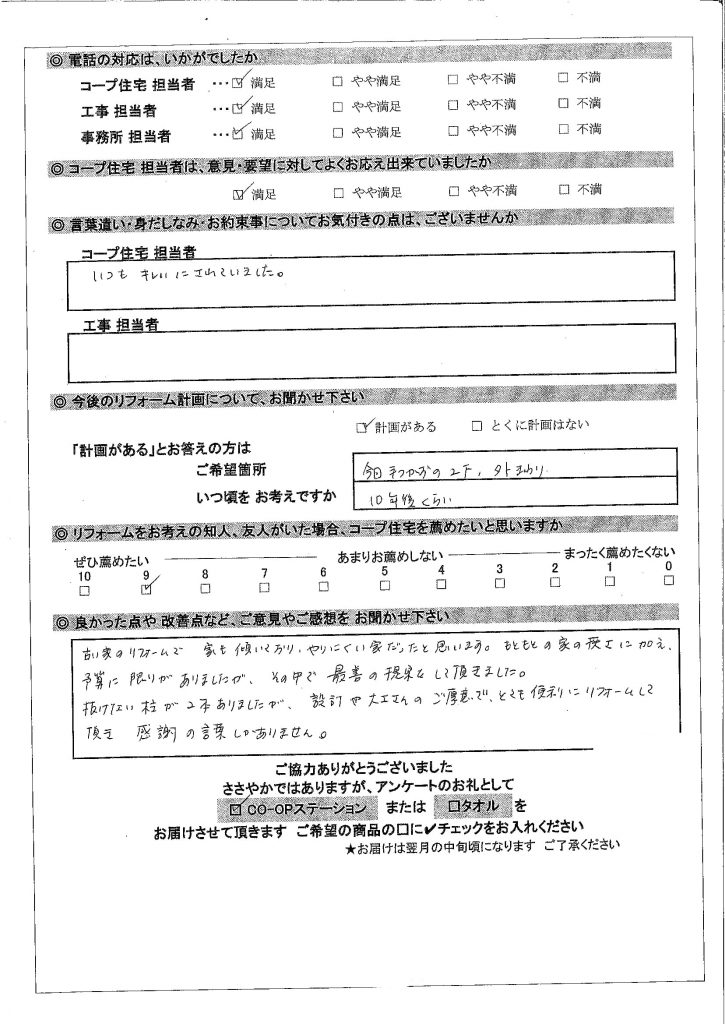 ◎ 電話の対応は、いかがでしたか
コープ住宅 担当者 …☑ 満足 □ やや満足 □ やや不満 □ 不満
工事 担当者 …☑ 満足 □ やや満足 □ やや不満 □ 不満
事務所 担当者 …☑ 満足 □ やや満足 □ やや不満 □ 不満
◎ コープ住宅 担当者は、意見・要望に対してよくお応え出来ていましたか
☑ 満足 □ やや満足 □ やや不満 □ 不満
◎ 言葉遣い・身だしなみ・お約束事についてお気付きの点は、ございませんか
コープ住宅 担当者
いつも キレイにされていました。
工事 担当者
◎ 今後のリフォーム計画について、お聞かせ下さい
☑ 計画がある □ とくに計画はない
「計画がある」とお答えの方は
ご希望箇所 今回 の2F, 外まわり
いつ頃を お考えですか 10年後くらい
◎ リフォームをお考えの知人、友人がいた場合、コープ住宅を薦めたいと思いますか
ぜひ薦めたい あまりお薦めしない まったく薦めたくない
10 9 8 7 6 5 4 3 2 1 0
□ ☑ □ □ □ □ □ □ □ □ □
◎ 良かった点や 改善点など、ご意見やご感想を お聞かせ下さい
古い家のリフォームで 家も傾いており、やりにくい家だったと思います。もともとの家の狭さに加え、
予算に限りがありましたが、その中で 最善の提案をして頂きました。
抜けない柱が2本ありましたが、設計や大工さんのご厚意で、とても便利にリフォームして
頂き 感謝の言葉しかありません。
ご協力ありがとうございました
ささやかではありますが、アンケートのお礼として
☑ CO-OPステーション または □タオル を
お届けさせて頂きます ご希望の商品の□に✔チェックをお入れください
★お届けは翌月の中旬頃になります ご了承ください